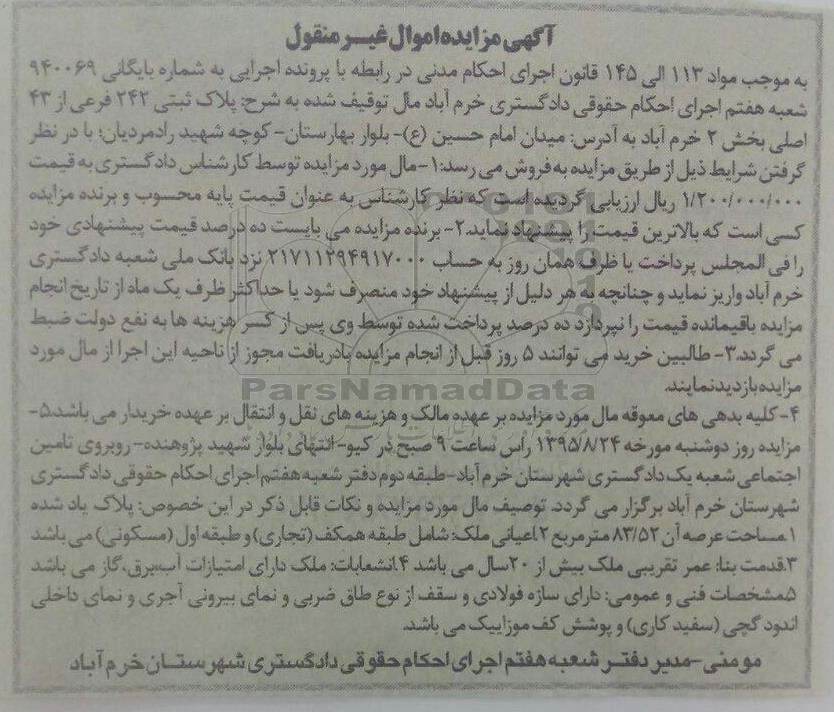 آگهی مزایده اموال غیر منقول
به موجب مواد ۱۱۳ الی ۱۴۵ قانون اجرای احکام مدنی در رابطه با پرونده اجرایی به شماره بایگانی ۹۴۰۰۶۹
شعبه هفتم اجرای احکام حقوقی دادگستری خرم آباد مال توقیف شده به شرح: پلاک ثبتی ۲۴۲ فرعی از ۴۳
اصلی بخش ۲ خرم آباد به آدرس: میدان امام حسین (ع)- بلوار بهارستان- کوچه شهید رادمردیان؛ با در نظر
گرفتن شرایط ذیل از طریق مزایده به فروش می رسد: ۱-مال مورد مزایده توسط کارشناس دادگستری به قیمت
۱/۲۰۰/۰۰۰/۰۰۰ ریال ارزیابی گردیده است که نظر کارشناس به عنوان قیمت پایه محسوب و برنده مزایده
کسی است که بالاترین قیمت را پیشنهاد نماید.۲- برنده مزایده می بایست ده درصد قیمت پیشنهادی خود
را فی المجلس پرداخت یا ظرف همان روز به حساب ۲۱۷۱۱۲۹۴۹۱۷۰۰۰ نزد بانک ملی شعبه دادگستری
خرم آباد واریز نماید و چنانچه به هر دلیل از پیشنهاد خود منصرف شود یا حداکثر ظرف یک ماه از تاریخ انجام
مزایده باقیمانده قیمت را نپردازد ده درصد پرداخت شده توسط وی پس از کسر هزینه ها به نفع دولت ضبط
می گردد.۳- طالبین خرید می توانند ۵ روز قبل از انجام مزایده بادریافت مجوز از ناحیه این اجرا از مال مورد
مزایده بازدید نمایند.
ParsNamadData
۴- کلیه بدهی های معوقه مال مورد مزایده بر عهده مالک و هزینه های نقل و انتقال بر عهده خریدار می باشد.۵-
مزایده روز دوشنبه مورخه ۱۳۹۵/۸/۲۴ راس ساعت ۹ صبح در کیو- انتهای بلوار شهید پژوهنده- روبروی تامین
اجتماعی شعبه یک دادگستری شهرستان خرم آباد- طبقه دوم دفتر شعبه هفتم اجرای احکام حقوقی دادگستری
شهرستان خرم آباد برگزار می گردد. توصیف مال مورد مزایده و نکات قابل ذکر در این خصوص: پلاک یاد شده
۱.مساحت عرصه آن ۸۳/۵۲ متر مربع ۲.اعیانی ملک: شامل طبقه همکف (تجاری) و طبقه اول (مسکونی) می باشد
۳.قدمت بنا: عمر تقریبی ملک بیش از ۲۰سال می باشد ۴.انشعابات: ملک دارای امتیازات آب،برق،گاز می باشد
۵.مشخصات فنی و عمومی: دارای سازه فولادی و سقف از نوع طاق ضربی و نمای بیرونی آجری و نمای داخلی
اندود گچی (سفید کاری) و پوشش کف موزاییک می باشد.
مومنی-مدیر دفتر شعبه هفتم اجرای احکام حقوقی دادگستری شهرستان خرم آباد